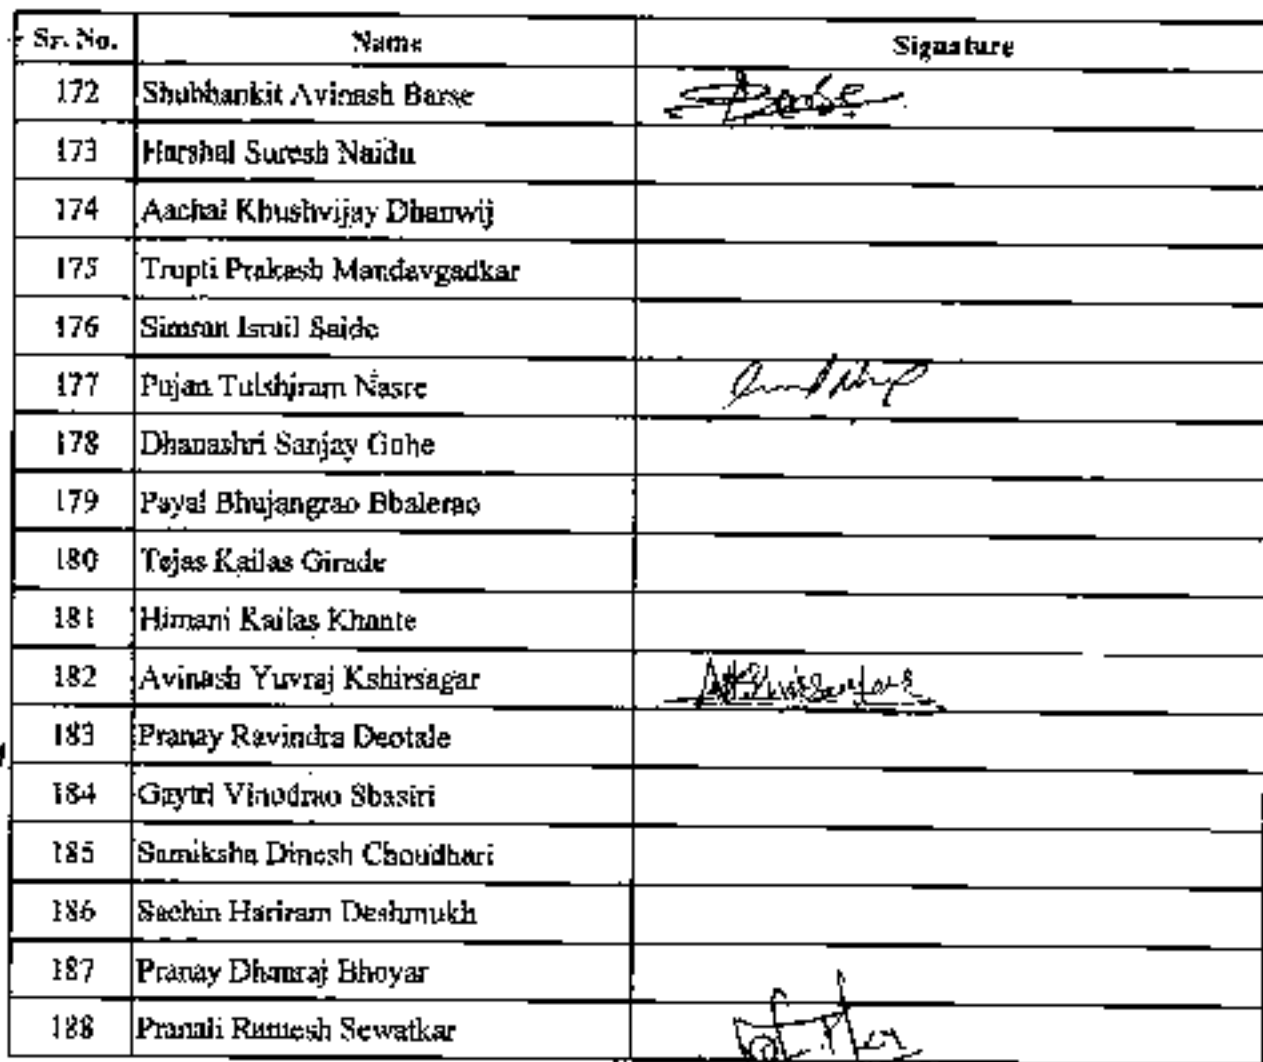 Sr. No. Name Signature
172 Shubhankit Avinash Barse Barse
173 Harshal Suresh Naidu
174 Aachal Khushvijay Dhanwij
175 Trupti Prakash Mandavgadkar
176 Simran Ismil Saide
177 Pujan Tulshiram Nasre
178 Dhanashri Sanjay Gohe
179 Payal Bhujangrao Bhalerao
180 Tejas Kailas Girade
181 Himani Kailas Khante
182 Avinash Yuvraj Kshirsagar
183 Pranay Ravindra Deotale
184 Gaytri Vinodrao Shasiri
185 Samiksha Dinesh Choudhari
186 Sachin Hariram Deshmukh
187 Pranay Dhanraj Bhoyar
188 Pranali Ramesh Sewatkar